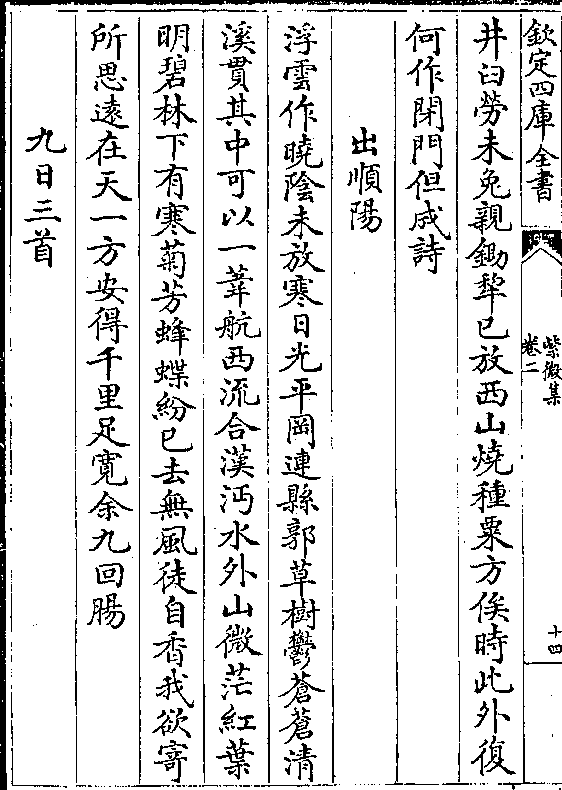 欽定四庫全書
紫微集
卷二
十四
井臼勞未免親鋤犂已放西山燒種粟方俟時此外復
何作閉門但成詩
出順陽
浮雲作曉陰未放寒日光平岡連縣郭草樹鬱蒼蒼清
溪貫其中可以一葦航西流合漢沔水外山微茫紅葉
明碧林下有寒菊芳蜂蝶紛已去無風徒自香我欲寄
所思遠在天一方安得千里足寛余九回腸
九日三首